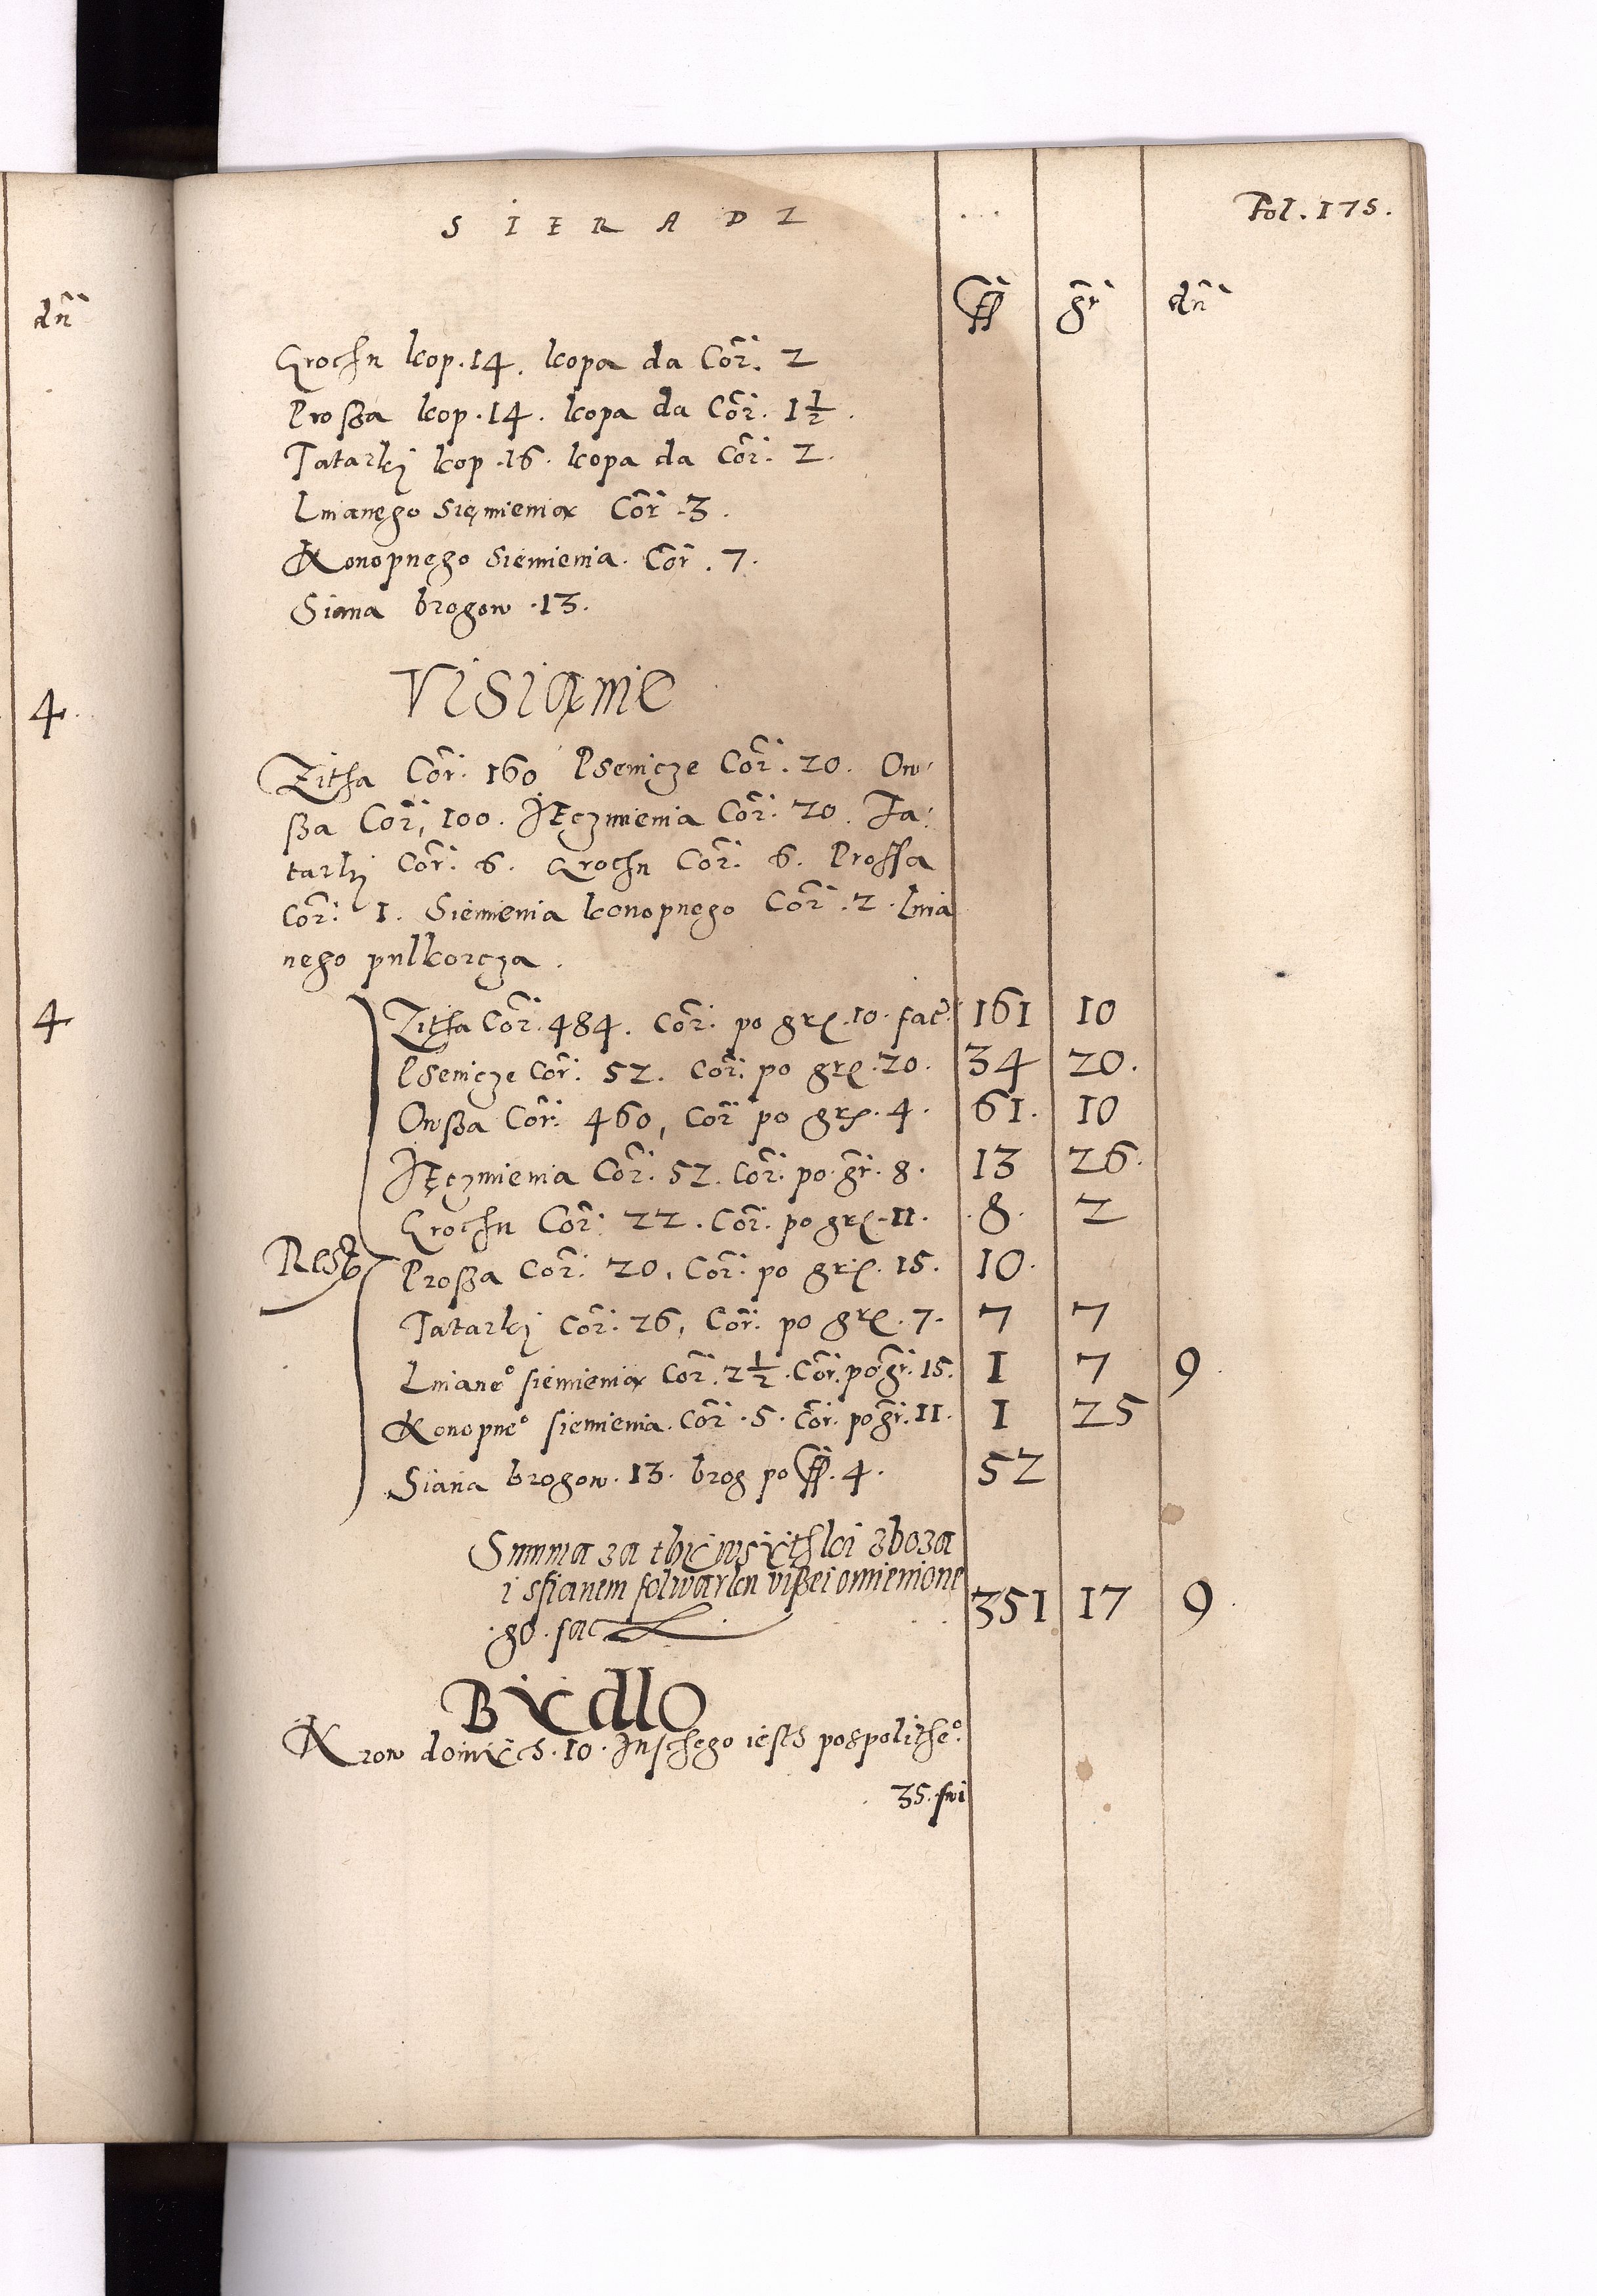 dn̄
4
4
SIERADZ
Fol. 175.
ff gr dn̄
Grochu kop. 14. kopa da Cor. 2
Proßa kop. 14. kopa da Cor. 1½.
Tatarki kop. 16. kopa da Cor. 2.
Lnianego Sięmienia Cor. 3.
Konopnego Siemienia. Cor. 7.
Siana brogow. 13.
Visianie
Zitha Cor. 160 Psenicze Cor. 20. Ow-
ßa Cor. 100. Jęczmienia Cor. 20. Ta:
tarki Cor. 6. Grochu Cor. 6. Prossa
Cor. 1. Siemienia konopnego Cor. 2. lnia
nego pulkorcza.
Rest
Zitha Cor. 484. Cor. po gr. 10. fac. 161 10
Psenicze Cor. 52. Cor. po gr. 20. 34 20.
Owßa Cor. 460, Cor po gr. 4. 61. 10
Jęczmienia Cor. 52. Cor. po. gr. 8. 13 26.
Grochu Cor. 22. Cor. po gr. 11. 8. 2
Proßa Cor. 20. Cor. po gr. 15. 10.
Tatarki Cor. 26, Cor. po gr. 7. 7 7
Lniane° siemienia Cor. 2½. Cor. po gr. 15. 1 7 9
Konopne° siemienia. Cor. 5. Cor. po gr. 11. 1 25
Siana brogow. 13. brog po ff. 4. 52
Summa za thy wsythki zboza
i sianem folwarku vißei omienione
go. fac 351 17 9
Bydlo
Krow doinych. 10. Inschego iesth pospolithe°.
35. swi